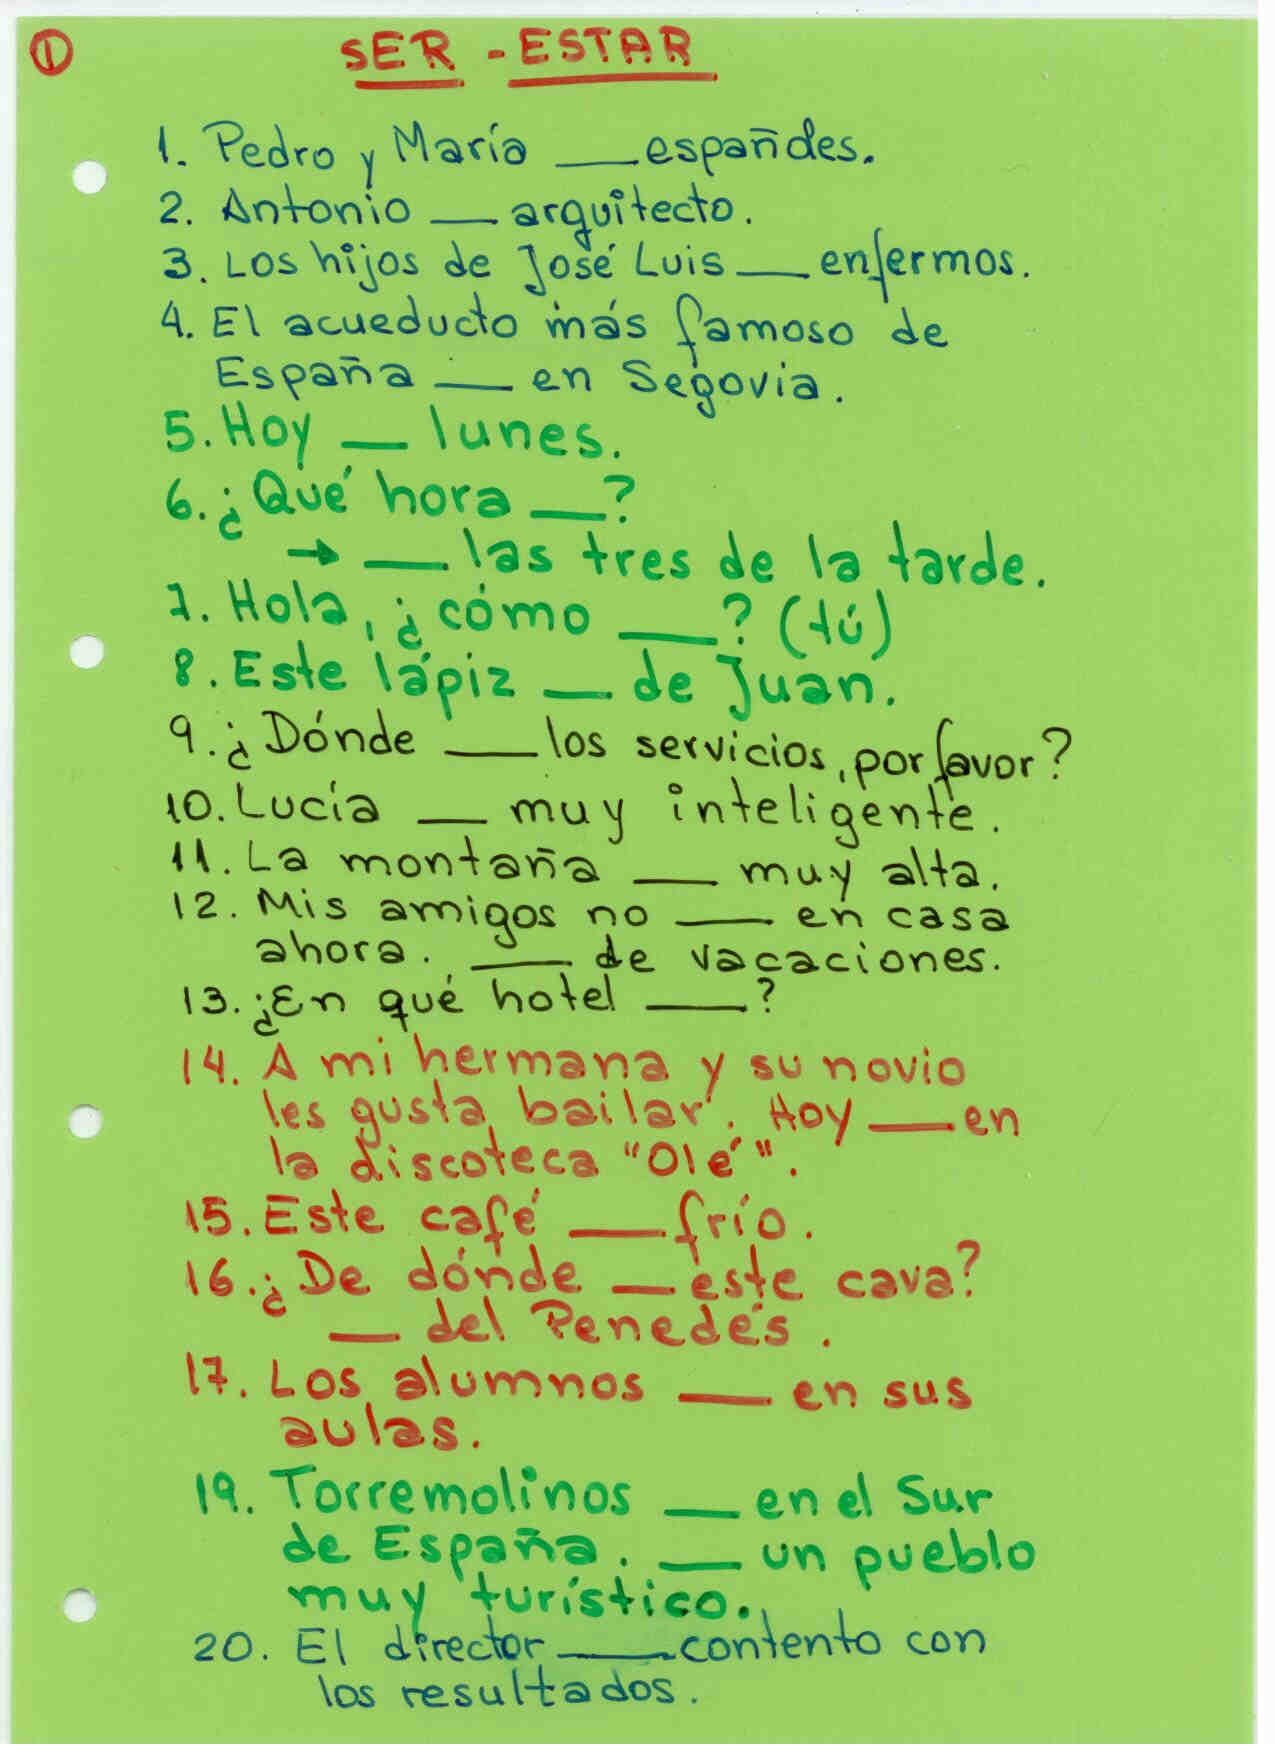 ①
SER - ESTAR
1. Pedro y María ___ españoles.
2. Antonio ___ arquitecto.
3. Los hijos de José Luis ___ enfermos.
4. El acueducto más famoso de
España ___ en Segovia.
5. Hoy ___ lunes.
6. ¿Qué hora ___?
→ ___ las tres de la tarde.
7. Hola, ¿cómo ___? (tú)
8. Este lápiz ___ de Juan.
9. ¿Dónde ___ los servicios, por favor?
10. Lucía ___ muy inteligente.
11. La montaña ___ muy alta.
12. Mis amigos no ___ en casa
ahora. ___ de vacaciones.
13. ¿En qué hotel ___?
14. A mi hermana y su novio
les gusta bailar. Hoy ___ en
la discoteca "Olé".
15. Este café ___ frío.
16. ¿De dónde ___ este cava?
___ del Penedés.
17. Los alumnos ___ en sus
aulas.
19. Torremolinos ___ en el Sur
de España. ___ un pueblo
muy turístico.
20. El director ___ contento con
los resultados.